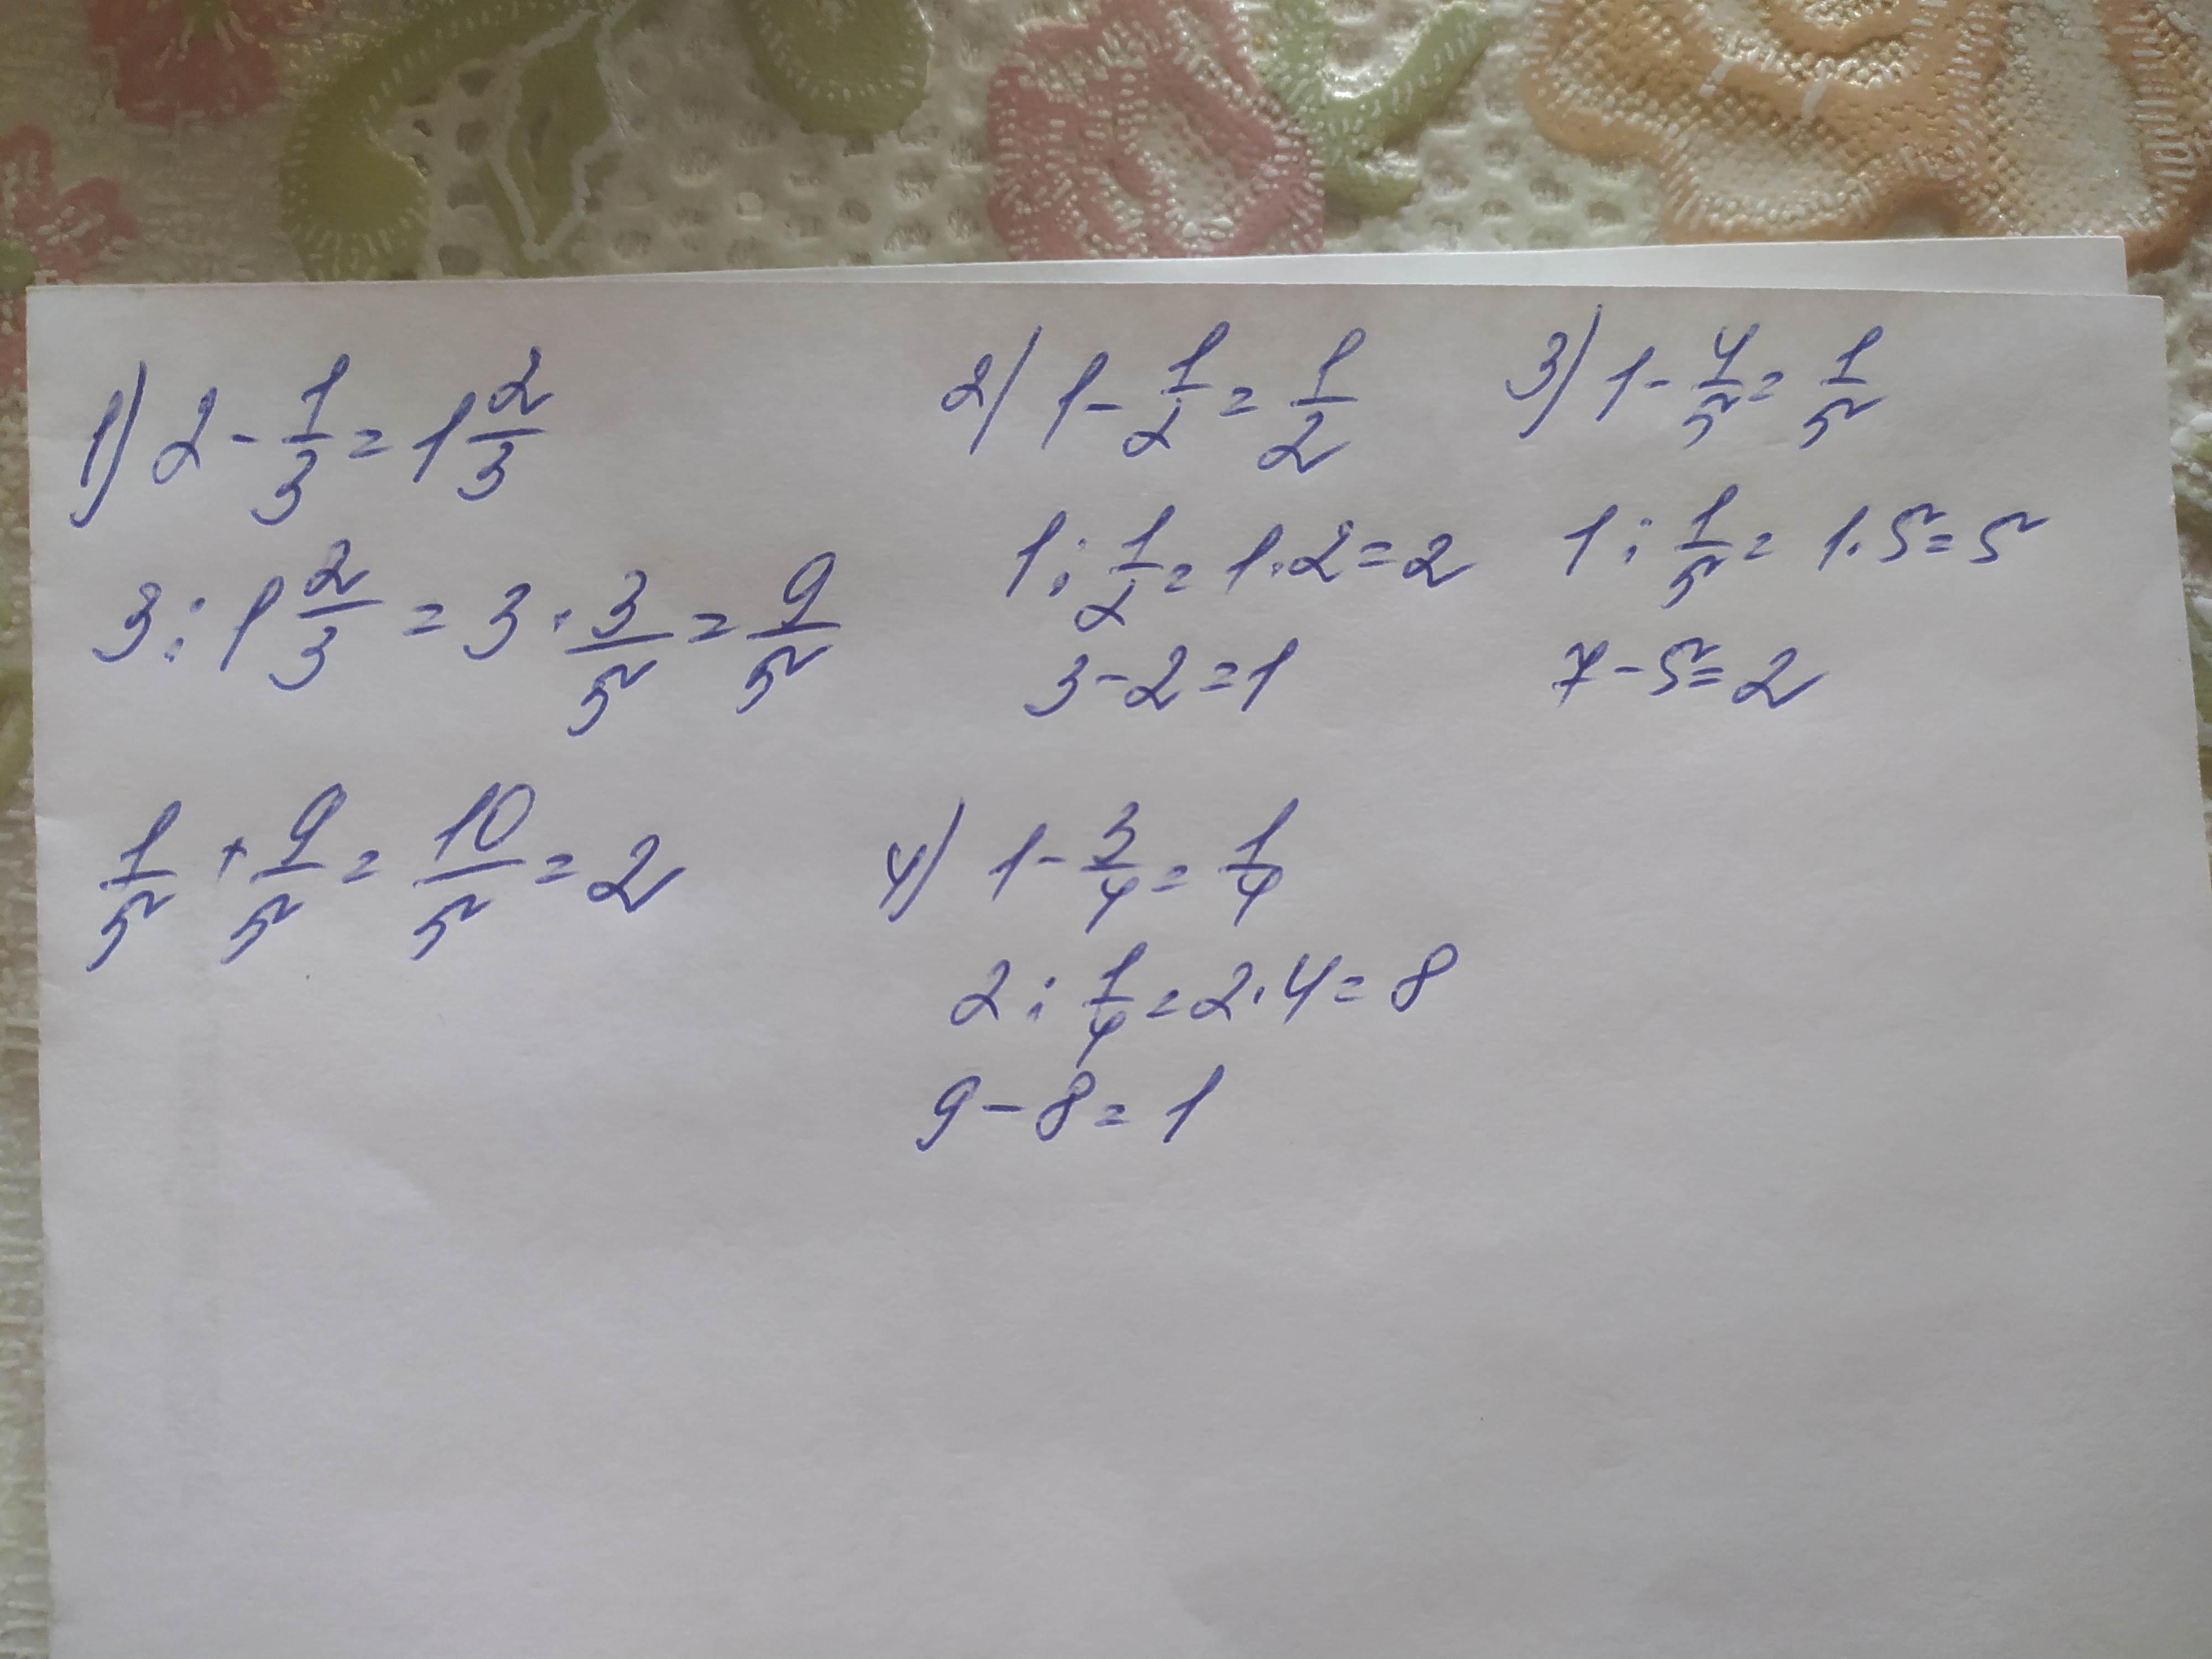 1) 2 - 1/3 = 1 2/3
3 : 1 2/3 = 3 · 3/5 = 9/5
1/5 + 9/5 = 10/5 = 2
2) 1 - 1/2 = 1/2
1 : 1/2 = 1 · 2 = 2
3 - 2 = 1
3) 1 - 4/5 = 1/5
1 : 1/5 = 1 · 5 = 5
7 - 5 = 2
4) 1 - 3/4 = 1/4
2 : 1/4 = 2 · 4 = 8
9 - 8 = 1